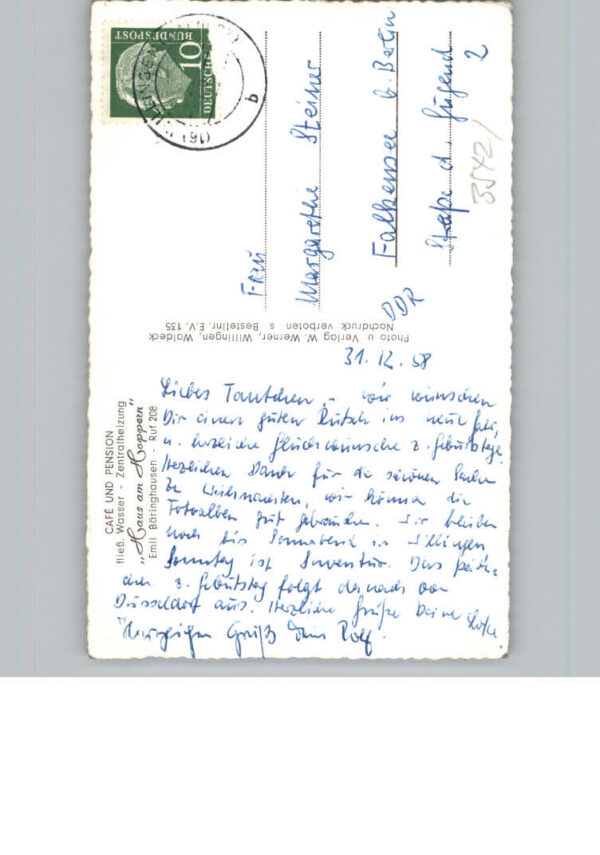 CAFÉ UND PENSION
fließ. Wasser - Zentralheizung
„Haus am Hoppern"
Emil Bäringhausen - Ruf 208
Photo u. Verlag W. Werner, Willingen, Waldeck
Nachdruck verboten s. Bestellnr. E.V. 135
10
DEUTSCHE
BUNDESPOST
(16)
b
Frau
Margarethe Steiner
Falkensee b. Berlin
Straße d. Jugend
2
DDR
3542/
31. 12. 58
Liebes Tantchen, - wir wünschen
Dir einen guten Rutsch ins neue Jahr,
u. herzliche Glückwünsche z. Geburtstage.
Herzlichen Dank für die schönen
zu Weihnachten, wir können die
Fotoalben gut gebrauchen. Wir bleiben
noch bis Sonnabend in Willingen,
Sonntag ist Inventur. Das Päck-
chen z. Geburtstag folgt danach von
Düsseldorf aus. Herzliche Grüße Deine Lotte.
Herzlichen Gruß Dein Rolf.